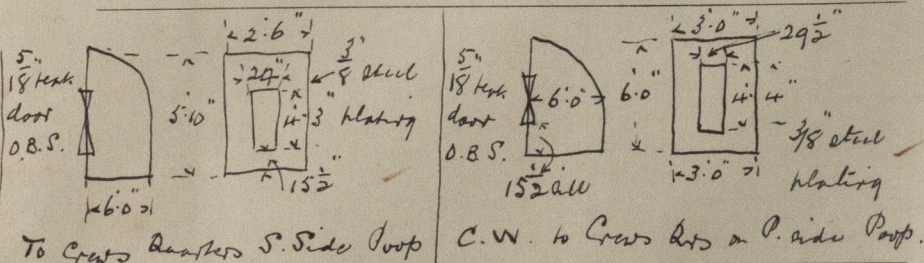 1 5/8" teak
door
O.B.S.
5'.10"
6'.0"
2'.6"
24"
4'.3"
15 1/2"
3/8" steel
plating
To Crews Quarters S. Side Poop
1 5/8" teak
door
O.B.S.
6'.0"
15 1/2 sill
6'.0"
3'.0"
29 1/2"
4'.4"
3'.0"
3/8" steel
plating
C.W. to Crews Qrs on P. side Poop.